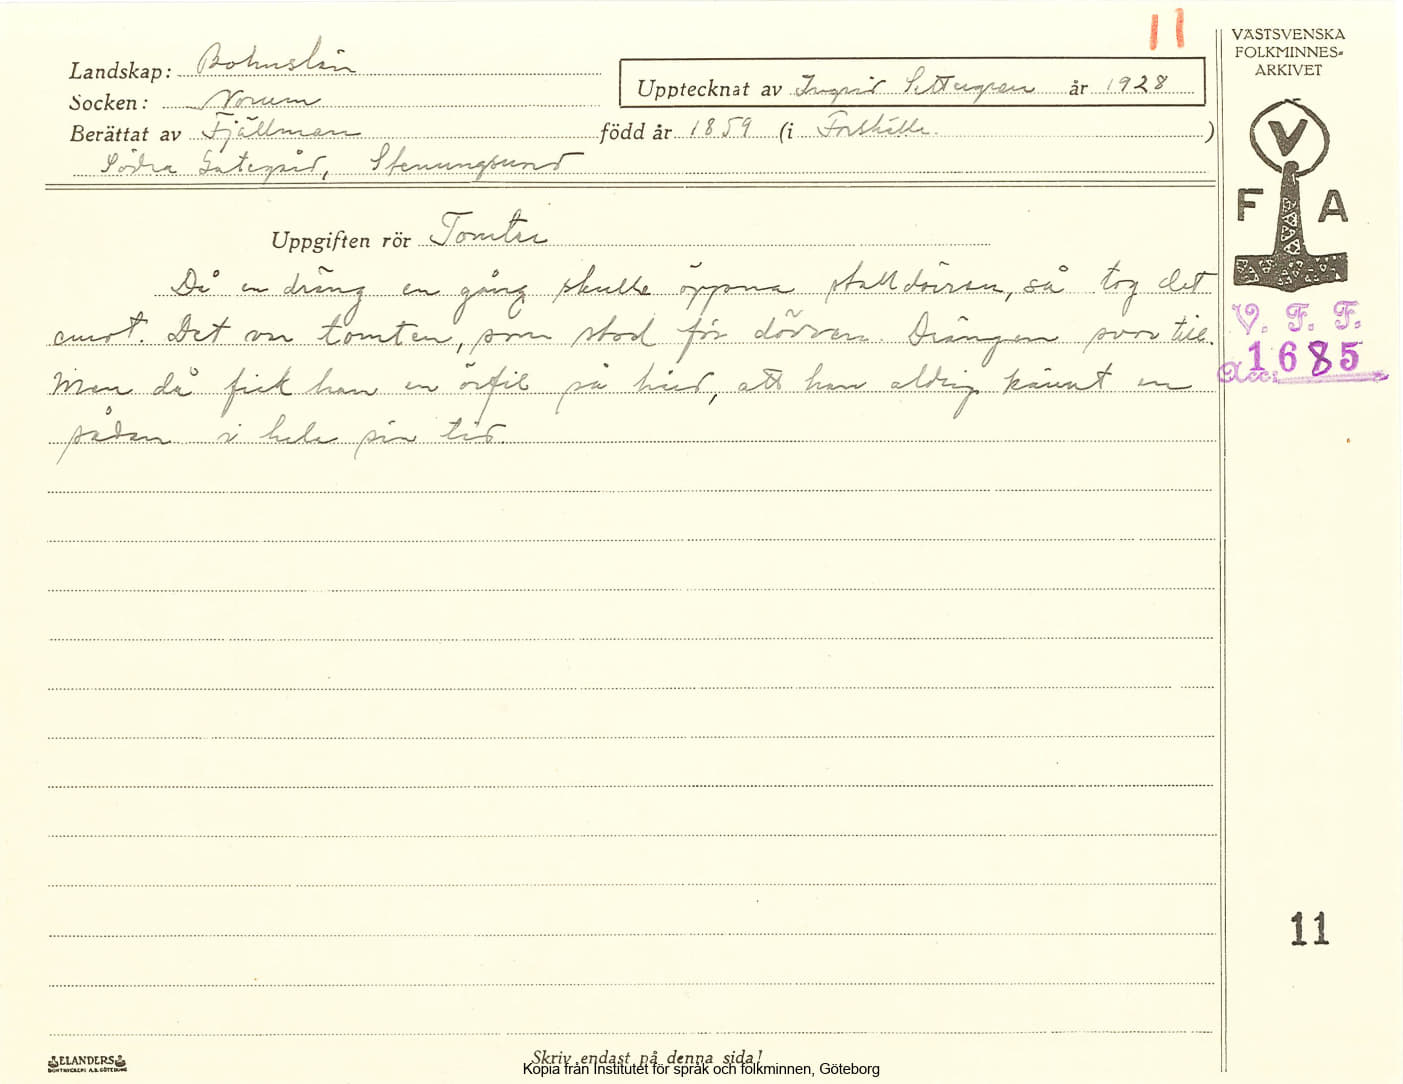 11
Landskap: Bohuslän
Socken: Norum
Berättat av Fjällman
Södra Stenungsund
Upptecknat av Ingrid år 1928
född år 1859 (i Forshälla.)
Uppgiften rör Tomten
Då en dräng en gång skulle öppna stalldörren, så tog det
emot. Det var tomten, som stod för dörren. Drängen svor till.
Men då fick han en örfil så hård, att han aldrig känt en
sådan i hela sin tid
VÄSTSVENSKA
FOLKMINNES-
ARKIVET
V
F A
V. F. F.
Acc: 1685
11
ELANDERS
BOKTRYCKERI A.B. GÖTEBORG
Skriv endast på denna sida!
Kopia från Institutet för språk och folkminnen, Göteborg